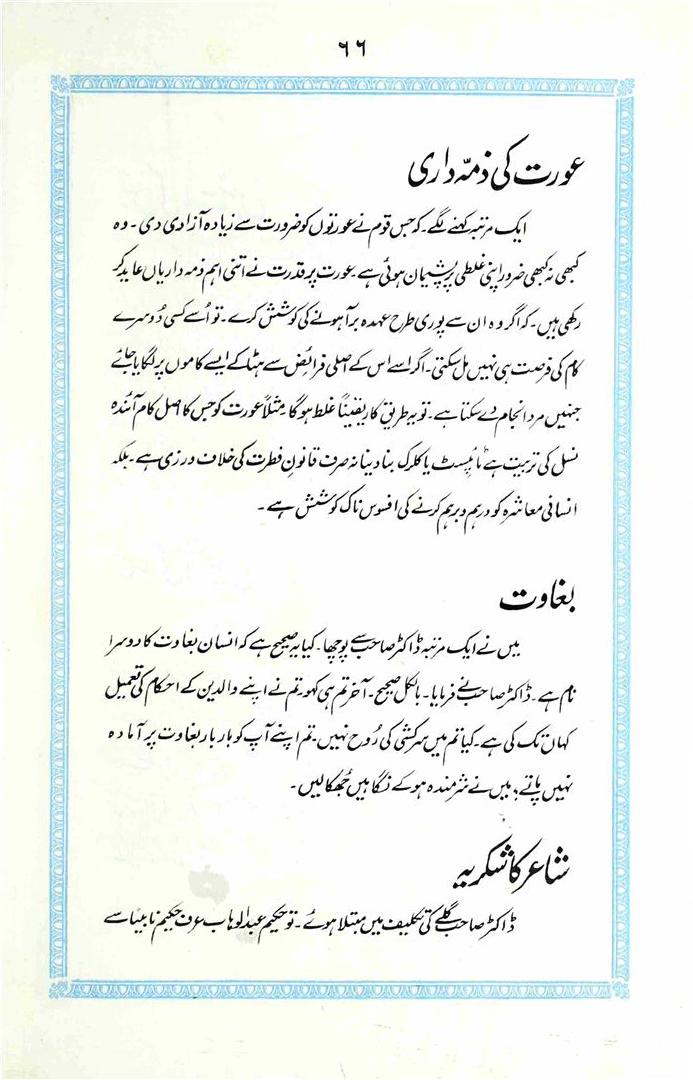 ۶۶
عورت کی ذمہ داری
ایک مرتبہ کہنے لگے۔ کہ جس قوم نے عورتوں کو ضرورت سے زیادہ آزادی دی۔ وہ
کبھی نہ کبھی ضرور اپنی غلطی پر پشیمان ہوئی ہے۔ عورت پر قدرت نے اتنی اہم ذمہ داریاں عاید کر
رکھی ہیں۔ کہ اگر وہ ان سے پوری طرح عہدہ برآ ہونے کی کوشش کرے۔ تو اُسے کسی دُوسرے
کام کی فرصت ہی نہیں مل سکتی۔ اگر اسے اس کے اصلی فرائض سے ہٹا کے ایسے کاموں پر لگایا جائے
جنہیں مرد انجام دے سکتا ہے۔ تو یہ طریق کار یقیناً غلط ہوگا۔ مثلاً عورت کو جس کا اصل کام آئندہ
نسل کی تربیت ہے ٹائپسٹ یا کلرک بنا دینا نہ صرف قانونِ فطرت کی خلاف ورزی ہے۔ بلکہ
انسانی معاشرہ کو درہم و برہم کرنے کی افسوس ناک کوشش ہے۔
بغاوت
میں نے ایک مرتبہ ڈاکٹر صاحب سے پوچھا۔ کیا یہ صحیح ہے کہ انسان بغاوت کا دوسرا
نام ہے۔ ڈاکٹر صاحب نے فرمایا۔ بالکل صحیح۔ آخر تم ہی کہو تم نے اپنے والدین کے احکام کی تعمیل
کہاں تک کی ہے۔ کیا تم میں سرکشی کی رُوح نہیں۔ تم اپنے آپ کو بار بار بغاوت پر آمادہ
نہیں پاتے؛ میں نے شرمندہ ہو کے نگاہیں جُھکا لیں۔
شاعر کا شکریہ
ڈاکٹر صاحب گلے کی تکلیف میں مبتلا ہوئے۔ تو حکیم عبدالوہاب عرف حکیم نابینا سے